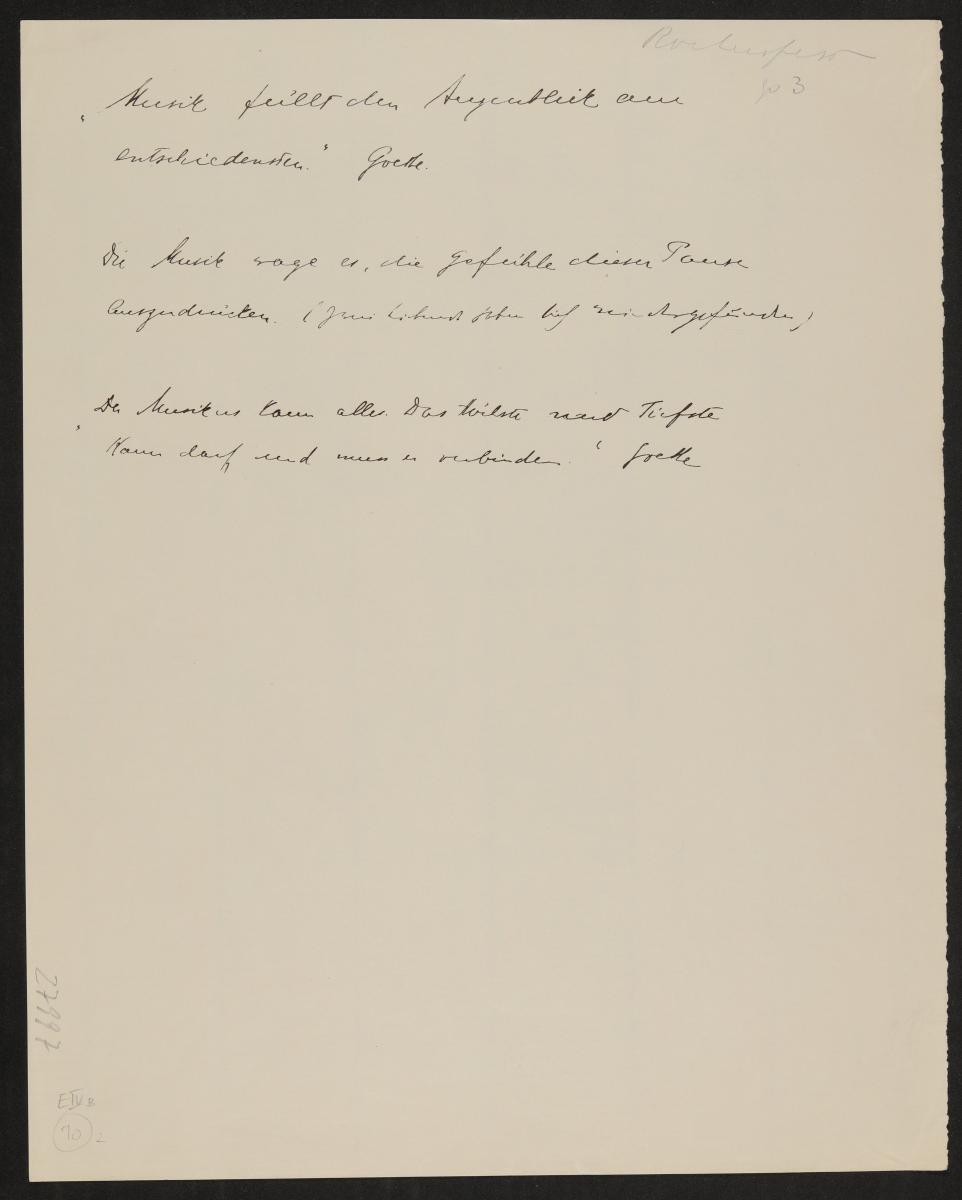 Rochusfest
3
„Musik füllt den Augenblick am
entschiedensten." Goethe.
Die Musik wage es, die Gefühle dieser Pause
auszudrücken. (zwei Liebende haben sich
Der Musikus kann alles. Das Höchste und Tiefste
„kann darf und muss er verbinden." Goethe
27997
E IV B
70 2